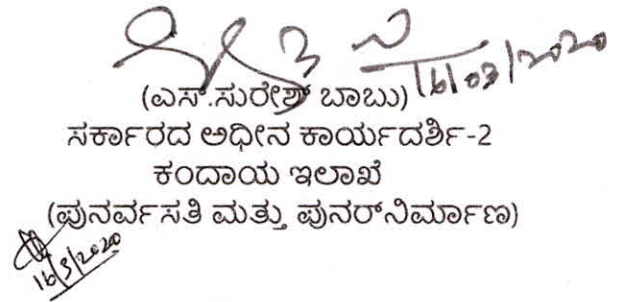 16/03/2020
(ಎಸ್.ಸುರೇಶ್ ಬಾಬು)
ಸರ್ಕಾರದ ಅಧೀನ ಕಾರ್ಯದರ್ಶಿ-2
ಕಂದಾಯ ಇಲಾಖೆ
(ಪುನರ್ವಸತಿ ಮತ್ತು ಪುನರ್‌ನಿರ್ಮಾಣ)
16/3/2020